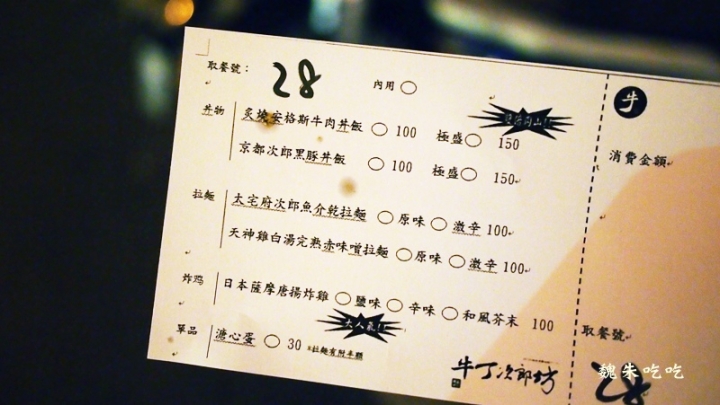 取餐號：
28
內用 ○
丼物
炙燒安格斯牛肉丼飯 ○ 100 極盛○ 150
京都次郎黑豚丼飯 ○ 100 極盛○ 150
拉麵
太宰府次郎魚介乾拉麵 ○原味 ○激辛 100
天神雞白湯完熟赤味噌拉麵 ○原味 ○激辛 100
炸鷄
日本薩摩唐揚炸雞 ○鹽味 ○辛味 ○和風芥末 100
大人氣!
單品
溏心蛋 ○ 30 ※拉麵有附半顆
牛丁次郎坊
牛
消費金額
取餐號
28
魏朱吃吃